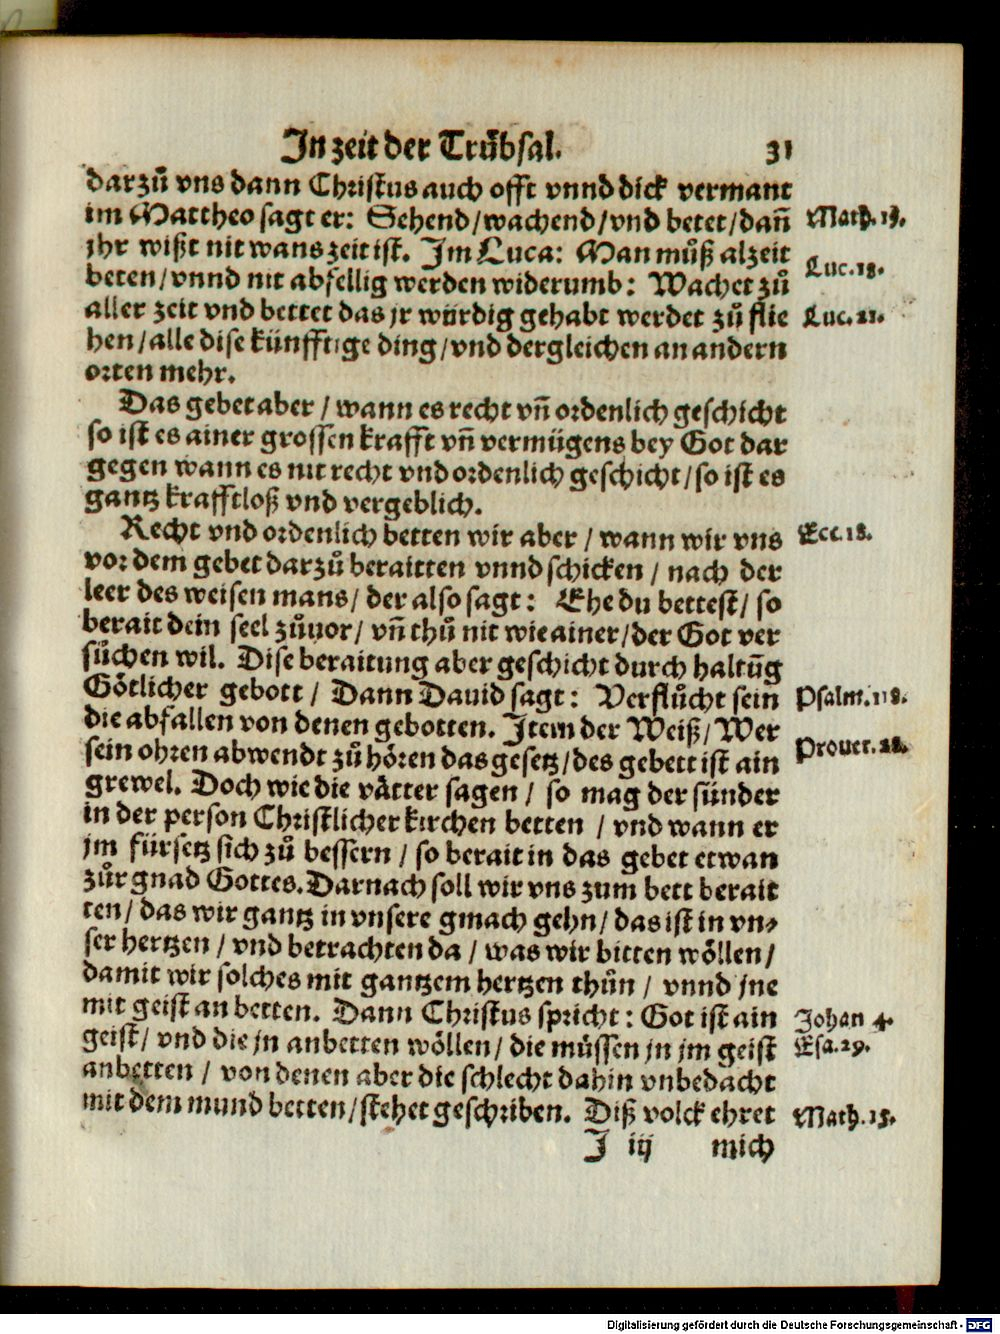 In zeit der Trůbsal. 31
darzů vns dann Christus auch offt vnnd dick vermant
im Mattheo sagt er: Sehend/wachend/vnd betet/dañ
jhr wißt nit wans zeit ist. Im Luca: Man můß alzeit
beten/vnnd nit abfellig werden widerumb: Wachet zů
aller zeit vnd bettet das jr würdig gehabt werdet zů flie
hen/alle dise künfftige ding/vnd dergleichen an andern
orten mehr.
Das gebet aber / wann es recht vñ ordenlich geschicht
so ist es ainer grossen krafft vñ vermügens bey Got dar
gegen wann es nit recht vnd ordenlich geschicht/so ist es
gantz krafftloß vnd vergeblich.
Recht vnd ordenlich betten wir aber / wann wir vns
vor dem gebet darzů beraitten vnnd schicken / nach der
leer des weisen mans/ der also sagt: Ehe du bettest/ so
berait dein seel zůuor/ vñ thů nit wie ainer/der Got ver
sůchen wil. Dise beraitung aber geschicht durch haltũg
Götlicher gebott / Dann Dauid sagt: Verflůcht sein
die abfallen von denen gebotten. Item der Weiß/Wer
sein ohren abwendt zů hören das gesetz/des gebett ist ain
grewel. Doch wie die vätter sagen / so mag der sünder
in der person Christlicher kirchen betten / vnd wann er
jm fürsetz sich zů bessern / so berait in das gebet etwan
zůr gnad Gottes. Darnach soll wir vns zum bett berait
ten/ das wir gantz in vnsere gmach gehn/ das ist in vn⸗
ser hertzen / vnd betrachten da / was wir bitten wöllen/
damit wir solches mit gantzem hertzen thůn / vnnd jne
mit geist an betten. Dann Christus spricht: Got ist ain
geist/ vnd die jn anbetten wöllen/ die müssen jn jm geist
anbetten / von denen aber die schlecht dahin vnbedacht
mit dem mund betten/stehet geschriben. Diß volck ehret
J iij mich
Luc. 18.
Luc. 21.
Ecc. 18.
Psalm. 118.
Prouer. 28.
Johan 4.
Esa. 29.
Math. 15.
Digitalisierung gefördert durch die Deutsche Forschungsgemeinschaft - DFG